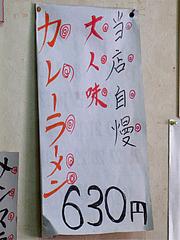 当店自慢
大人味
カレーラーメン
630円